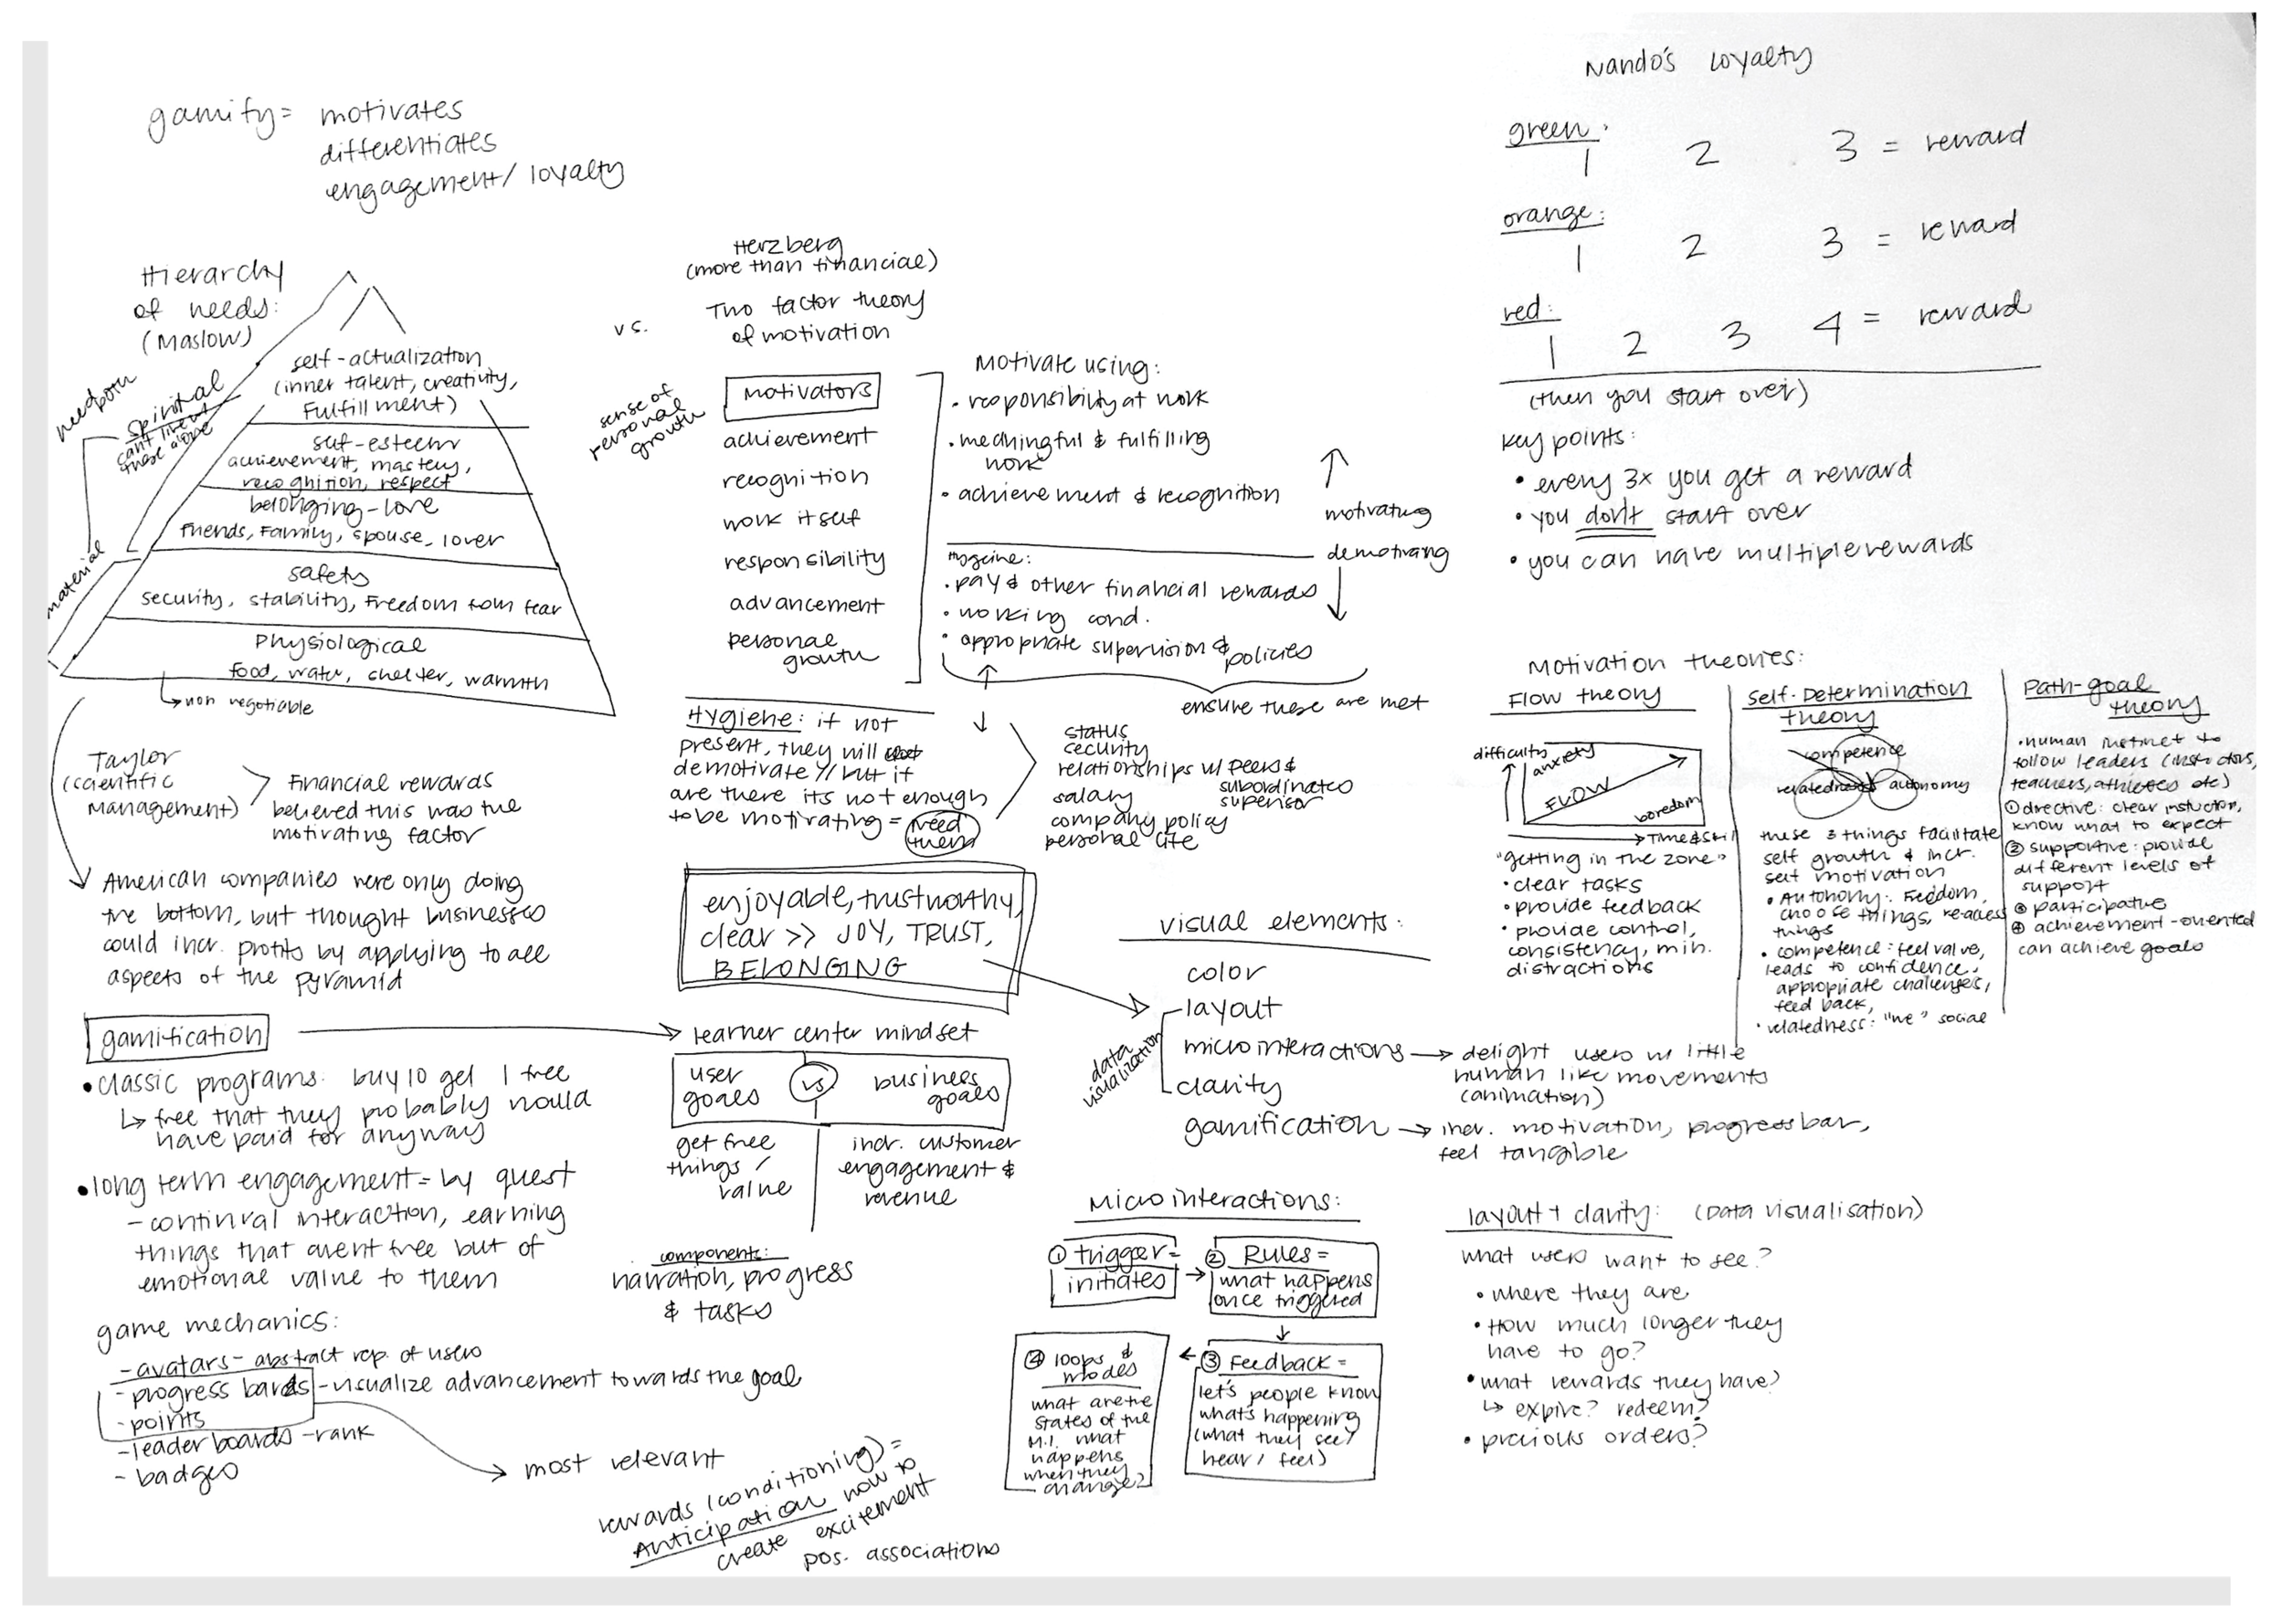 gamify = motivates
differentiates
engagement / loyalty
Hierarchy
of needs:
(Maslow)
need both
spiritual
can't live w/
these alone
material
self-actualization
(inner talent, creativity,
Fulfillment)
self-esteem
achievement, mastery,
recognition, respect
belonging-love
Friends, Family, spouse, lover
safety
security, stability, Freedom from fear
Physiological
food, water, shelter, warmth
non negotiable
Taylor
(scientific
management)
Financial rewards
believed this was the
motivating factor
American companies were only doing
the bottom, but thought businesses
could incr. profits by applying to all
aspects of the pyramid
vs.
Herzberg
(more than financial)
Two factor theory
of motivation
sense of
personal
growth
motivators
achievement
recognition
work itself
responsibility
advancement
personal
growth
Motivate using:
• responsibility at work
• meaningful & fulfilling
work
• achievement & recognition
motivating
demotivating
Hygeine:
• pay & other financial rewards
• working cond.
• appropriate supervision &
policies
ensure these are met
Hygiene: if not
present, they will
demotivate // but if
are there its not enough
to be motivating = need
them
status
security
relationships w/ peers &
subordinates
supervisor
salary
company policy
personal life
enjoyable, trustworthy,
clear >> JOY, TRUST,
BELONGING
gamification
learner center mindset
• classic programs: buy 10 get 1 free
↳ free that they probably would
have paid for anyway
• long term engagement = by quest
- continual interaction, earning
things that arent free but of
emotional value to them
user
goals
vs
business
goals
get free
things /
value
incr. customer
engagement &
revenue
components:
narration, progress
& tasks
game mechanics:
- avatars - abstract rep. of users
- progress bards - visualize advancement towards the goal
- points
- leader boards - rank
- badges
most relevant
rewards (conditioning) =
Anticipation now to
create excitement
pos. associations
visual elements:
color
layout
microinteractions → delight users w little
human like movements
(animation)
clarity
data
visualization
gamification → incr. motivation, progress bar,
feel tangible
Microinteractions:
① Trigger =
initiates
② Rules =
what happens
once triggered
③ Feedback =
let's people know
what's happening
(what they see /
hear / feel)
④ loops &
modes
what are the
states of the
M.I. what
happens
when they
change?
layout + clarity: (Data visualisation)
what users want to see?
• where they are
• How much longer they
have to go?
• what rewards they have?
↳ expire? redeem?
• precious orders?
Nando's Loyalty
green:
1 2 3 = reward
orange:
1 2 3 = reward
red:
1 2 3 4 = reward
(then you start over)
Key points:
• every 3x you get a reward
• you don't start over
• you can have multiple rewards
Motivation theories:
Flow theory
difficulty
anxiety
FLOW
boredom
Time & skill
"getting in the zone"
• clear tasks
• provide feedback
• provide control,
consistency, min.
distractions
Self-Determination
theory
competence
relatedness
autonomy
these 3 things facilitate
self growth & incr.
self motivation
• Autonomy: Freedom,
choose things, re-access
things
• competence: feel value,
leads to confidence,
appropriate challenges,
feed back,
• relatedness: "we" social
Path-goal
theory
• human instinct to
follow leaders (instructors,
teachers, athletes etc)
① directive: clear instuctor,
know what to expect
② supportive: provide
different levels of
support
③ participative
④ achievement-oriented
can achieve goals